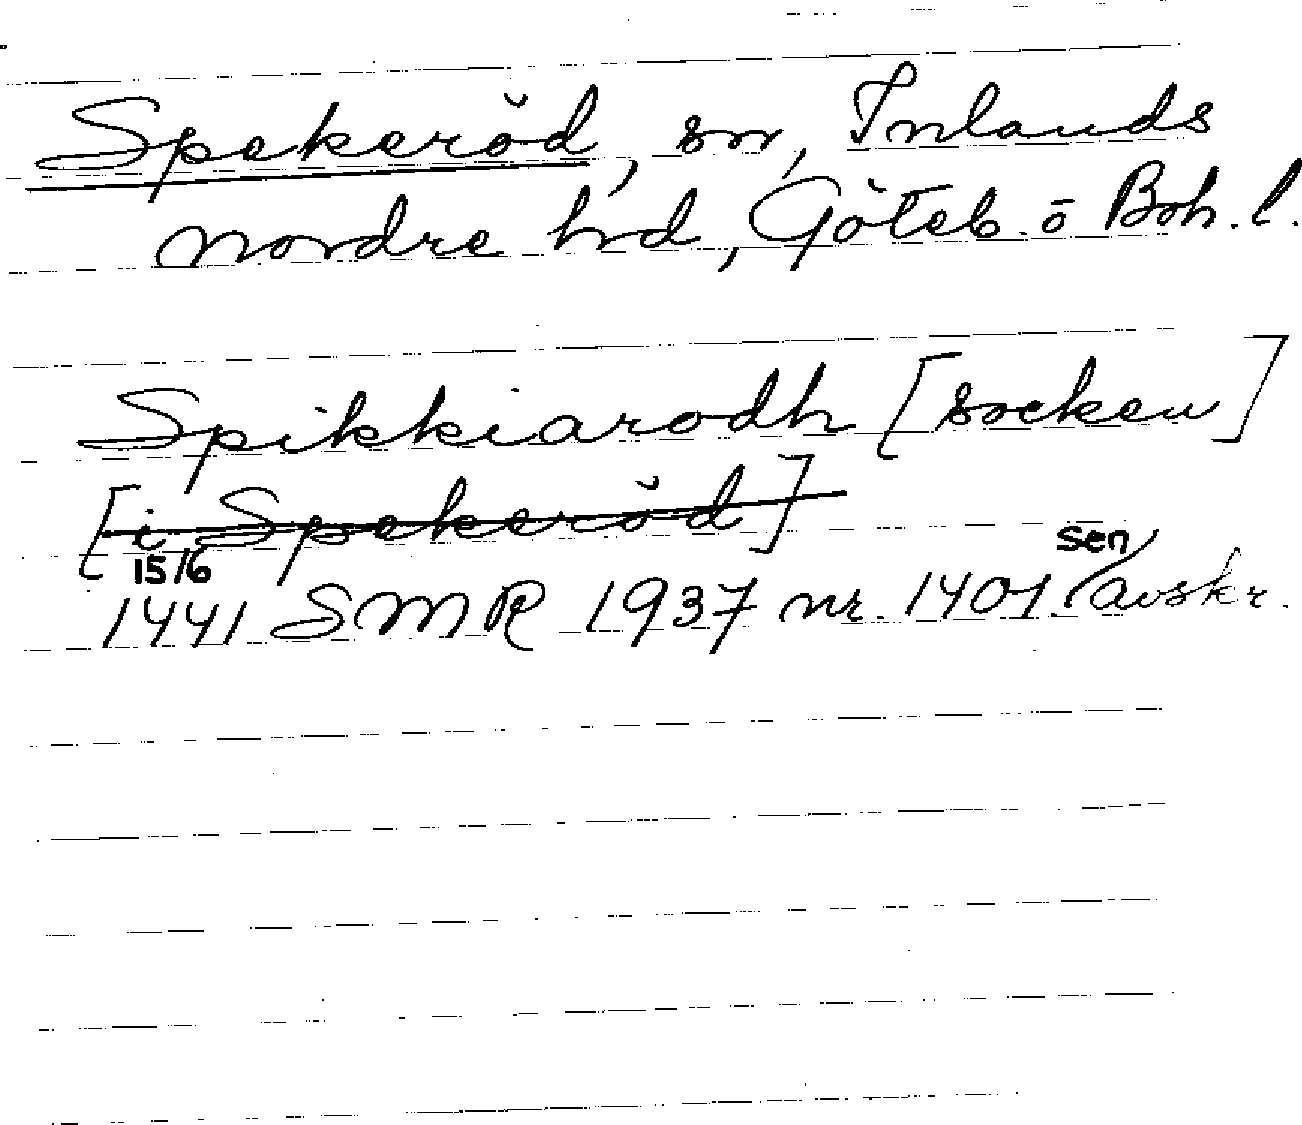 Spekeröd, sn, Inlands
nordre hd, Göteb. o Boh. l.
Spikkiarodh [socken]
[i Spekeröd]
15/6 sen
1441 SMR 1937 nr. 1401. avskr.